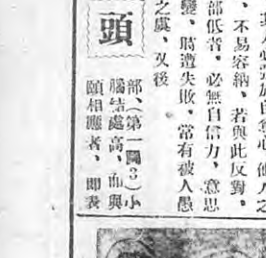 、不易容納、若與此反對、
部低者、必無自信力、意思
變、時遭失敗、當有被人愚
之虞、又後
頭
部、(第一圖3)小
腦結處高、而與
頤相應者、卽表